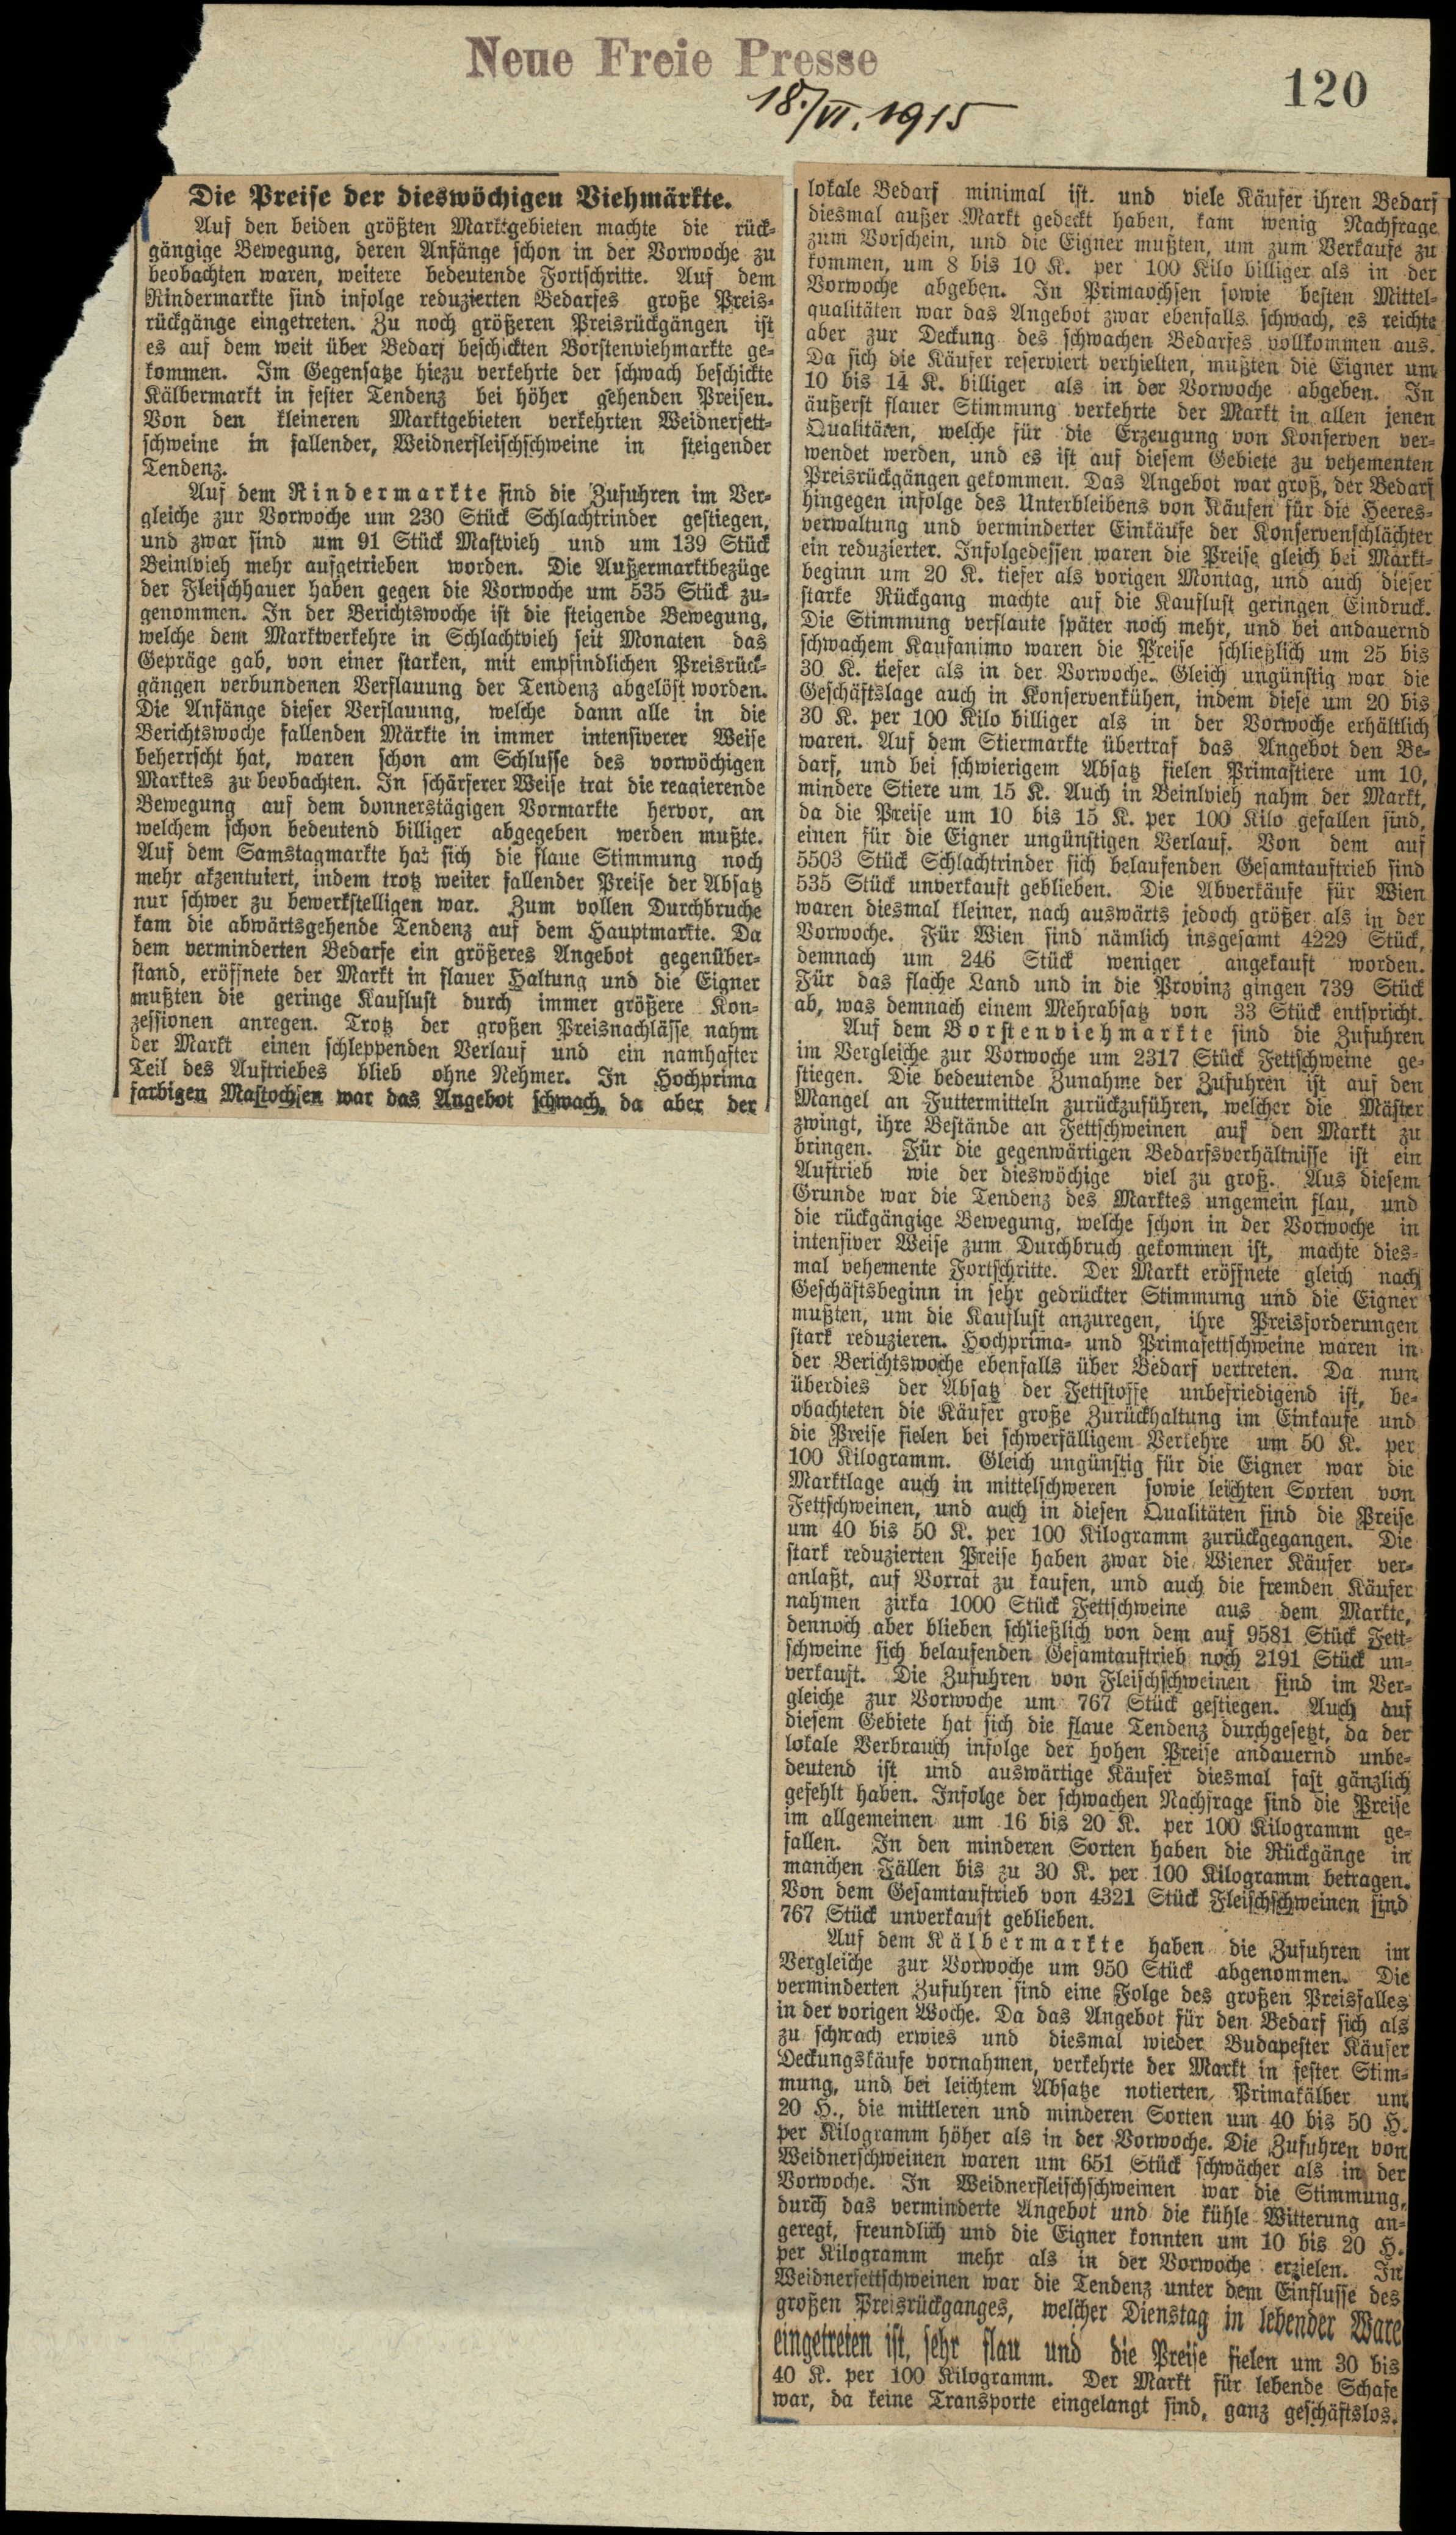 Neue Freie Presse
18./VI. 1915
120
Die Preise der dieswöchigen Viehmärkte.
Auf den beiden größten Marktgebieten machte die rück-
gängige Bewegung, deren Anfänge schon in der Vorwoche zu
beobachten waren, weitere bedeutende Fortschritte. Auf dem
Rindermarkte sind infolge reduzierten Bedarfes große Preis-
rückgänge eingetreten. Zu noch größeren Preisrückgängen ist
es auf dem weit über Bedarf beschickten Borstenviehmarkte ge-
kommen. Im Gegensatze hiezu verkehrte der schwach beschickte
Kälbermarkt in fester Tendenz bei höher gehenden Preisen.
Von den kleineren Marktgebieten verkehrten Weidnerfett-
schweine in fallender, Weidnerfleischschweine in steigender
Tendenz.
Auf dem Rindermarkte sind die Zufuhren im Ver-
gleiche zur Vorwoche um 230 Stück Schlachtrinder gestiegen,
und zwar sind um 91 Stück Mastvieh und um 139 Stück
Beinlvieh mehr aufgetrieben worden. Die Außermarktbezüge
der Fleischhauer haben gegen die Vorwoche um 535 Stück zu-
genommen. In der Berichtswoche ist die steigende Bewegung,
welche dem Marktverkehre in Schlachtvieh seit Monaten das
Gepräge gab, von einer starken, mit empfindlichen Preisrück-
gängen verbundenen Verflauung der Tendenz abgelöst worden.
Die Anfänge dieser Verflauung, welche dann alle in die
Berichtswoche fallenden Märkte in immer intensiverer Weise
beherrscht hat, waren schon am Schlusse des vorwöchigen
Marktes zu beobachten. In schärferer Weise trat die reagierende
Bewegung auf dem donnerstägigen Vormarkte hervor, an
welchem schon bedeutend billiger abgegeben werden mußte.
Auf dem Samstagmarkte hat sich die flaue Stimmung noch
mehr akzentuiert, indem trotz weiter fallender Preise der Absatz
nur schwer zu bewerkstelligen war. Zum vollen Durchbruche
kam die abwärtsgehende Tendenz auf dem Hauptmarkte. Da
dem verminderten Bedarfe ein größeres Angebot gegenüber-
stand, eröffnete der Markt in flauer Haltung und die Eigner
mußten die geringe Kauflust durch immer größere Kon-
zessionen anregen. Trotz der großen Preisnachlässe nahm
der Markt einen schleppenden Verlauf und ein namhafter
Teil des Auftriebes blieb ohne Nehmer. In Hochprima
farbigen Mastochsen war das Angebot schwach, da aber der
lokale Bedarf minimal ist. und viele Käufer ihren Bedarf
diesmal außer Markt gedeckt haben, kam wenig Nachfrage
zum Vorschein, und die Eigner mußten, um zum Verkaufe zu
kommen, um 8 bis 10 K. per 100 Kilo billiger als in der
Vorwoche abgeben. In Primaochsen sowie besten Mittel-
qualitäten war das Angebot zwar ebenfalls schwach, es reichte
aber zur Deckung des schwachen Bedarfes vollkommen aus.
Da sich die Käufer reserviert verhielten, mußten die Eigner um
10 bis 14 K. billiger als in der Vorwoche abgeben. In
äußerst flauer Stimmung verkehrte der Markt in allen jenen
Qualitäten, welche für die Erzeugung von Konserven ver-
wendet werden, und es ist auf diesem Gebiete zu vehementen
Preisrückgängen gekommen. Das Angebot war groß, der Bedarf
hingegen infolge des Unterbleibens von Käufen für die Heeres-
verwaltung und verminderter Einkäufe der Konservenschlächter
ein reduzierter. Infolgedessen waren die Preise gleich bei Markt-
beginn um 20 K. tiefer als vorigen Montag, und auch dieser
starke Rückgang machte auf die Kauflust geringen Eindruck.
Die Stimmung verflaute später noch mehr, und bei andauernd
schwachem Kaufanimo waren die Preise schließlich um 25 bis
30 K. tiefer als in der Vorwoche. Gleich ungünstig war die
Geschäftslage auch in Konservenkühen, indem diese um 20 bis
30 K. per 100 Kilo billiger als in der Vorwoche erhältlich
waren. Auf dem Stiermarkte übertraf das Angebot den Be-
darf, und bei schwierigem Absatz fielen Primastiere um 10,
mindere Stiere um 15 K. Auch in Beinlvieh nahm der Markt,
da die Preise um 10 bis 15 K. per 100 Kilo gefallen sind,
einen für die Eigner ungünstigen Verlauf. Von dem auf
5503 Stück Schlachtrinder sich belaufenden Gesamtauftrieb sind
535 Stück unverkauft geblieben. Die Abverkäufe für Wien
waren diesmal kleiner, nach auswärts jedoch größer als in der
Vorwoche. Für Wien sind nämlich insgesamt 4229 Stück,
demnach um 246 Stück weniger angekauft worden.
Für das flache Land und in die Provinz gingen 739 Stück
ab, was demnach einem Mehrabsatz von 33 Stück entspricht.
Auf dem Borstenviehmarkte sind die Zufuhren
im Vergleiche zur Vorwoche um 2317 Stück Fettschweine ge-
stiegen. Die bedeutende Zunahme der Zufuhren ist auf den
Mangel an Futtermitteln zurückzuführen, welcher die Mäster
zwingt, ihre Bestände an Fettschweinen auf den Markt zu
bringen. Für die gegenwärtigen Bedarfsverhältnisse ist ein
Auftrieb wie der dieswöchige viel zu groß. Aus diesem
Grunde war die Tendenz des Marktes ungemein flau, und
die rückgängige Bewegung, welche schon in der Vorwoche in
intensiver Weise zum Durchbruch gekommen ist, machte dies-
mal vehemente Fortschritte. Der Markt eröffnete gleich nach
Geschäftsbeginn in sehr gedrückter Stimmung und die Eigner
mußten, um die Kauflust anzuregen, ihre Preisforderungen
stark reduzieren. Hochprima- und Primafettschweine waren in
der Berichtswoche ebenfalls über Bedarf vertreten. Da nun
überdies der Absatz der Fettstoffe unbefriedigend ist, be-
obachteten die Käufer große Zurückhaltung im Einkaufe und
die Preise fielen bei schwerfälligem Verkehre um 50 K. per
100 Kilogramm. Gleich ungünstig für die Eigner war die
Marktlage auch in mittelschweren sowie leichten Sorten von
Fettschweinen, und auch in diesen Qualitäten sind die Preise
um 40 bis 50 K. per 100 Kilogramm zurückgegangen. Die
stark reduzierten Preise haben zwar die Wiener Käufer ver-
anlaßt, auf Vorrat zu kaufen, und auch die fremden Käufer
nahmen zirka 1000 Stück Fettschweine aus dem Markte,
dennoch aber blieben schließlich von dem auf 9581 Stück Fett-
schweine sich belaufenden Gesamtauftrieb noch 2191 Stück un-
verkauft. Die Zufuhren von Fleischschweinen sind im Ver-
gleiche zur Vorwoche um 767 Stück gestiegen. Auch auf
diesem Gebiete hat sich die flaue Tendenz durchgesetzt, da der
lokale Verbrauch infolge der hohen Preise andauernd unbe-
deutend ist und auswärtige Käufer diesmal fast gänzlich
gefehlt haben. Infolge der schwachen Nachfrage sind die Preise
im allgemeinen um 16 bis 20 K. per 100 Kilogramm ge-
fallen. In den minderen Sorten haben die Rückgänge in
manchen Fällen bis zu 30 K. per 100 Kilogramm betragen.
Von dem Gesamtauftrieb von 4321 Stück Fleischschweinen sind
767 Stück unverkauft geblieben.
Auf dem Kälbermarkte haben die Zufuhren im
Vergleiche zur Vorwoche um 950 Stück abgenommen. Die
verminderten Zufuhren sind eine Folge des großen Preisfalles
in der vorigen Woche. Da das Angebot für den Bedarf sich als
zu schwach erwies und diesmal wieder Budapester Käufer
Deckungskäufe vornahmen, verkehrte der Markt in fester Stim-
mung, und bei leichtem Absatze notierten Primakälber um
20 H., die mittleren und minderen Sorten um 40 bis 50 H.
per Kilogramm höher als in der Vorwoche. Die Zufuhren von
Weidnerschweinen waren um 651 Stück schwächer als in der
Vorwoche. In Weidnerfleischschweinen war die Stimmung,
durch das verminderte Angebot und die kühle Witterung an-
geregt, freundlich und die Eigner konnten um 10 bis 20 H.
per Kilogramm mehr als in der Vorwoche erzielen. In
Weidnerfettschweinen war die Tendenz unter dem Einflusse des
großen Preisrückganges, welcher Dienstag in lebender Ware
eingetreten ist, sehr flau und die Preise fielen um 30 bis
40 K. per 100 Kilogramm. Der Markt für lebende Schafe
war, da keine Transporte eingelangt sind, ganz geschäftslos.